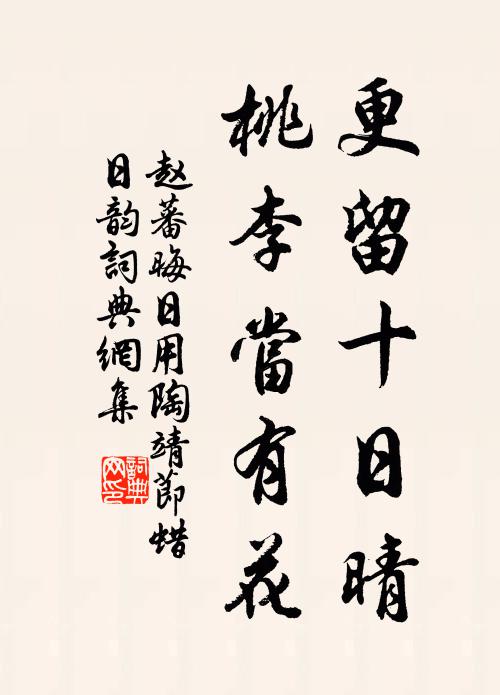 更留十日晴
桃李當有花
赵蕃晦日用陶靖節蜡
日韵詞典網集
詞典
网印